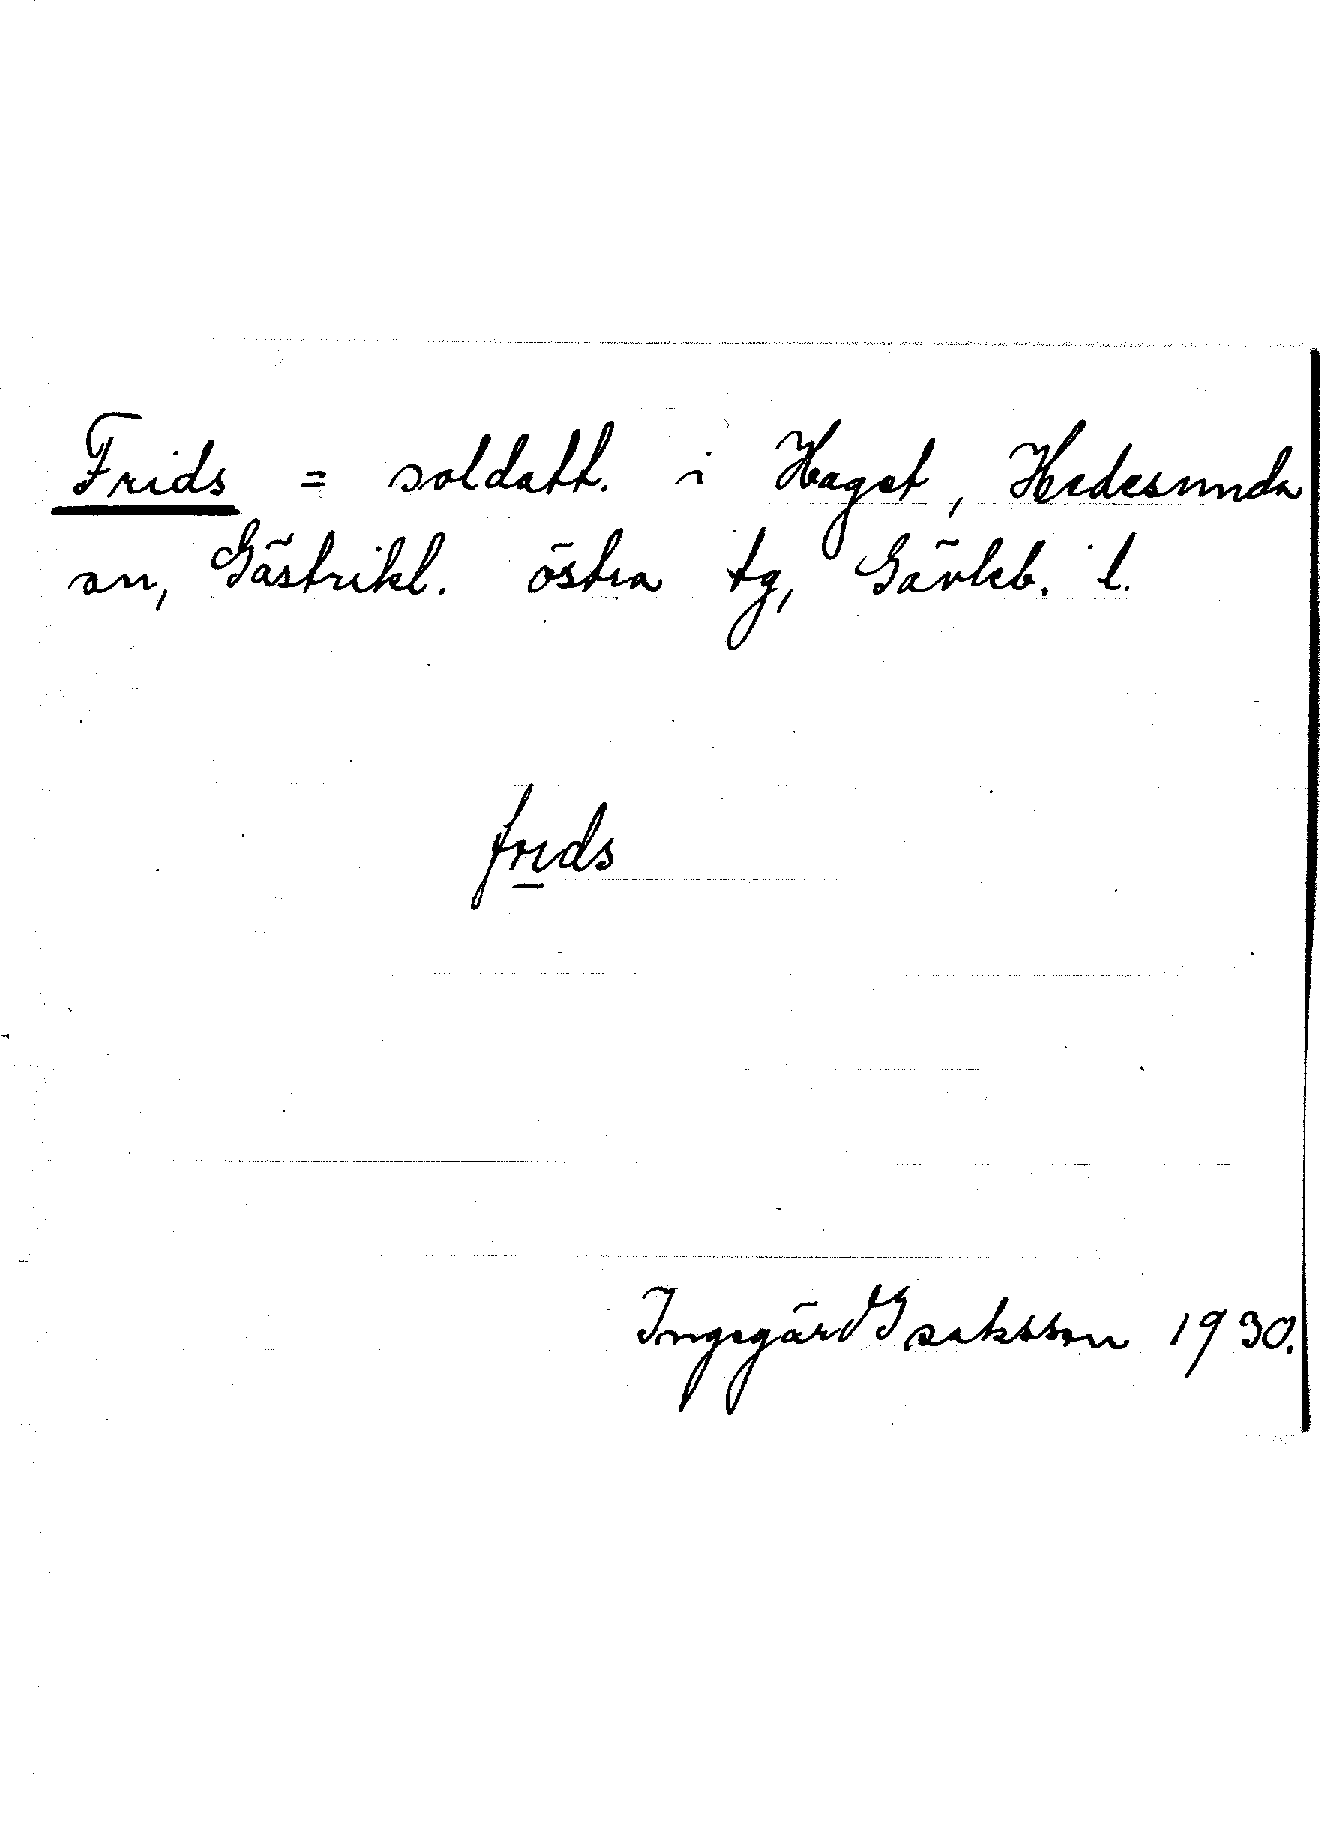 Frids = soldatt. i Haget, Hedesunda
sn, Gästrikl. östra tg, Gävleb. l.
frids
Ingegärd Isaksson 1930.